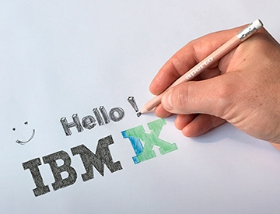 Hello!
IBM iX